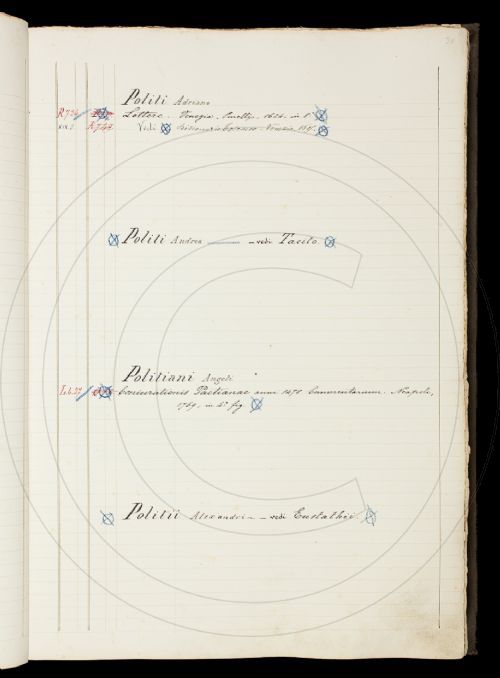 Politi Adriano
Lettere. Venezia. 1624. in 8°
R 744 Vedi Dizionario Toscano Venezia
Politi Andrea — vedi Tacito.
Politiani Angeli
Coniurationis Pactianae anni 1478 Commentarium. Neapoli,
1769. in 4° fig
Politii Alexandri — vedi Eustathii.